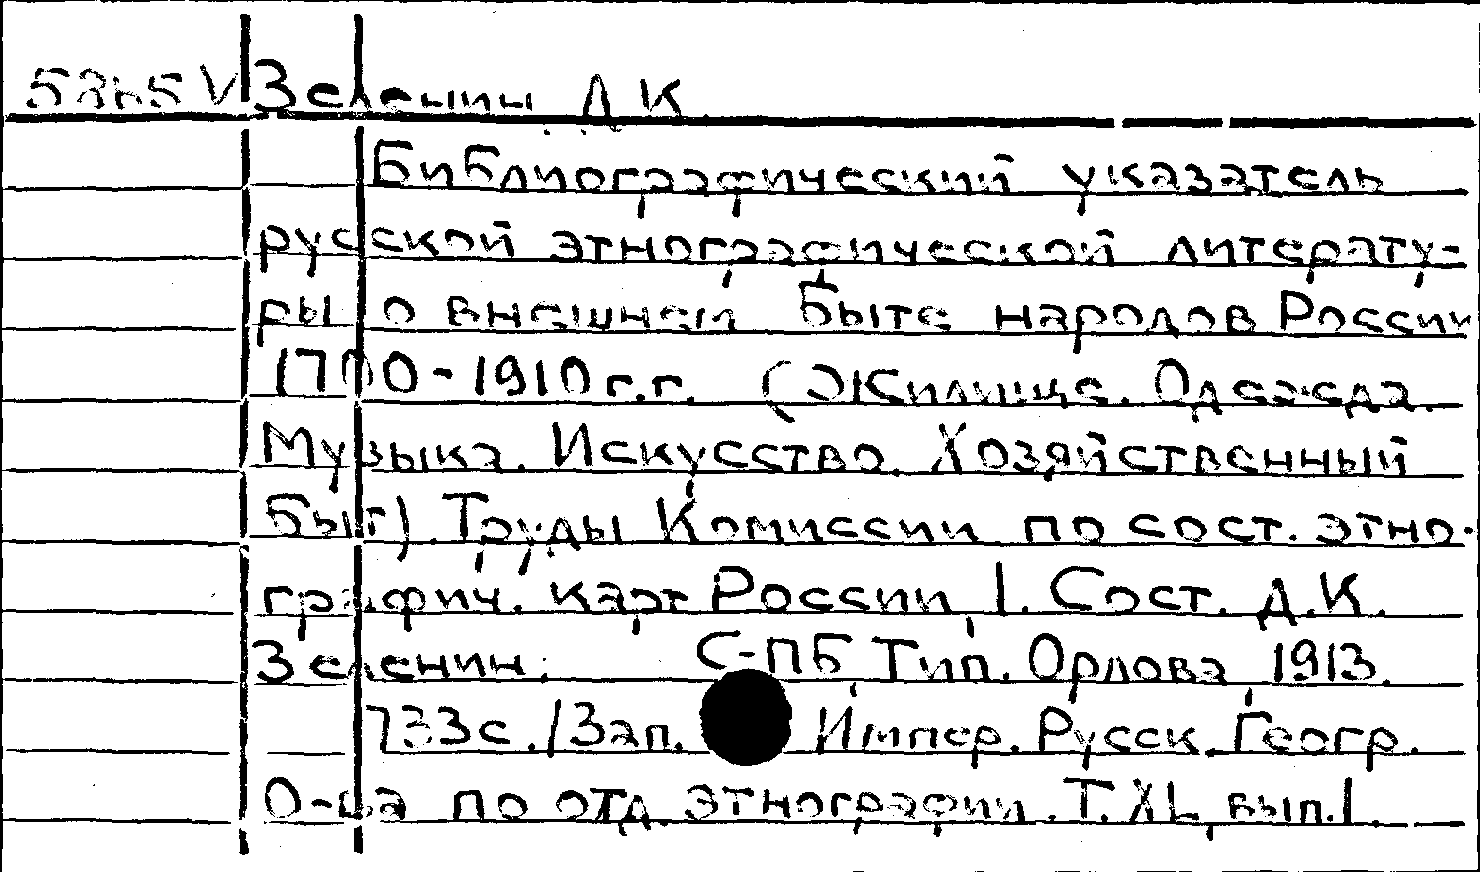 Зеленин Д.К.
Библиографический указатель
русской этнографической литерату-
ры о внешнем быте народов России
1700-1910 г.г. (Жилище. Одежда.
Музыка. Искусство. Хозяйственный
быт). Труды Комиссии по сост. этно-
графич. карт России I. Сост. Д.К.
Зеленин. С-ПБ, Тип. Орлова, 1913.
733с. /Зап. Импер. Русск. Геогр.
О-ва по отд. этнографии. Т. XL, вып. I.